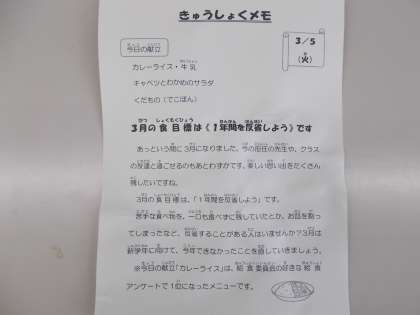 きゅうしょくメモ
3/5
(火)
今日の献立
カレーライス・牛乳
キャベツとわかめのサラダ
くだもの（でこぽん）
3月の食目標は《1年間を反省しよう》です
あっという間に3月になりました。今の担任の先生や、クラス
の友達と過ごせるのもあとわずかです。楽しい思い出をたくさん
残したいですね。
3月の食目標は、「1年間を反省しよう」です。
苦手な食べ物を、一口も食べずに残していたとか、お皿を割っ
てしまったなど、反省することがある人はいませんか？3月は
新学年に向けて、今年できなかったことを直していきましょう。
※今日の献立「カレーライス」は、給食委員会の好きな給食
アンケートで1位になったメニューです。